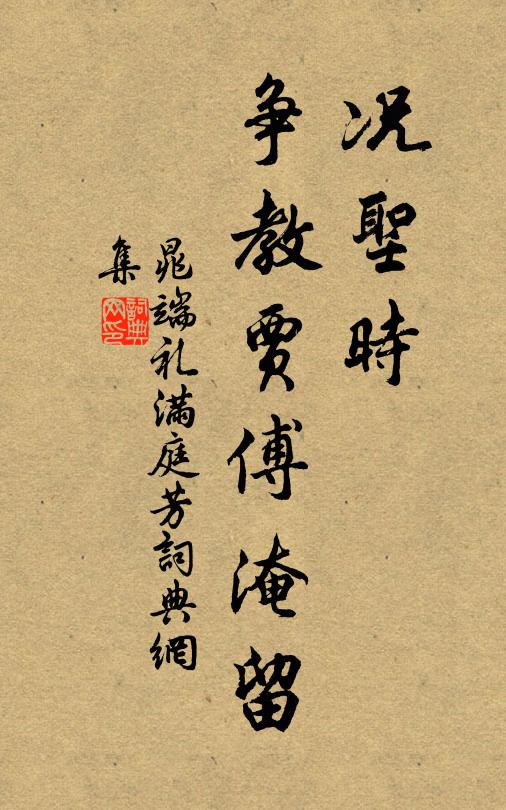 况聖時
争教賈傅淹留
晁端礼满庭芳詞典網
集